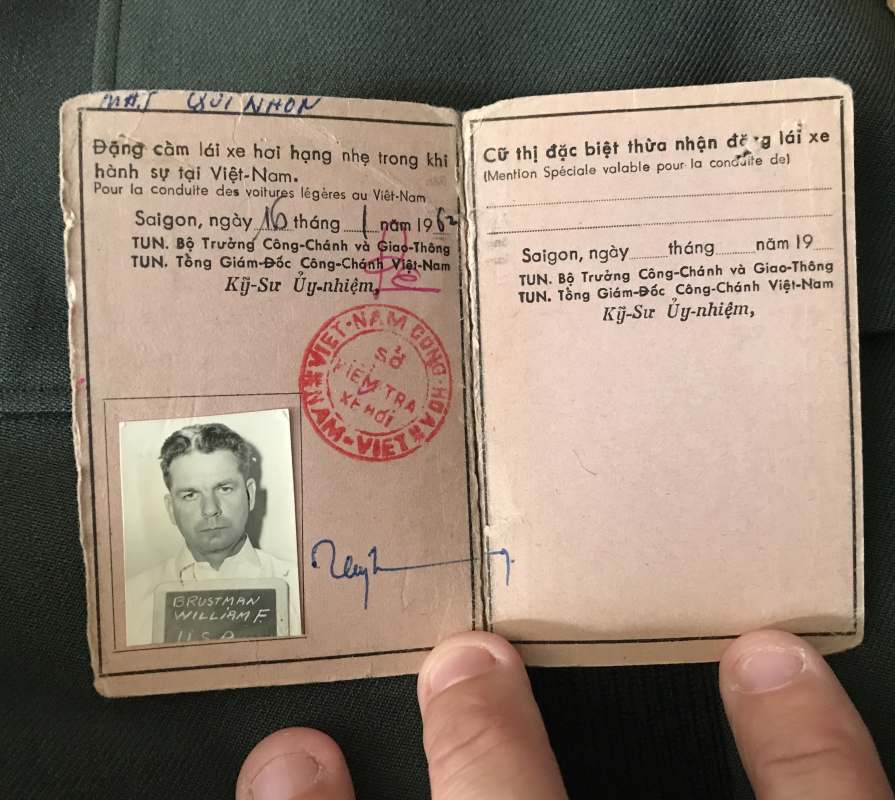 QUI NHON
Đặng cầm lái xe hơi hạng nhẹ trong khi
hành sự tại Việt-Nam.
Pour la conduite des voitures légères au Viêt-Nam
Saigon, ngày 16 tháng 1 năm 1962
TUN. Bộ Trưởng Công-Chánh và Giao-Thông
TUN. Tổng Giám-Đốc Công-Chánh Việt-Nam
Kỹ-Sư Ủy-nhiệm,
VIỆT-NAM CỘNG-HÒA
SỞ
KIỂM TRA
XE HƠI
NAM-VIỆT
BRUSTMAN
WILLIAM F.
USA
Cữ thị đặc biệt thừa nhận đặng lái xe
(Mention Spéciale valable pour la conduite de)
Saigon, ngày tháng năm 19
TUN. Bộ Trưởng Công-Chánh và Giao-Thông
TUN. Tổng Giám-Đốc Công-Chánh Việt-Nam
Kỹ-Sư Ủy-nhiệm,